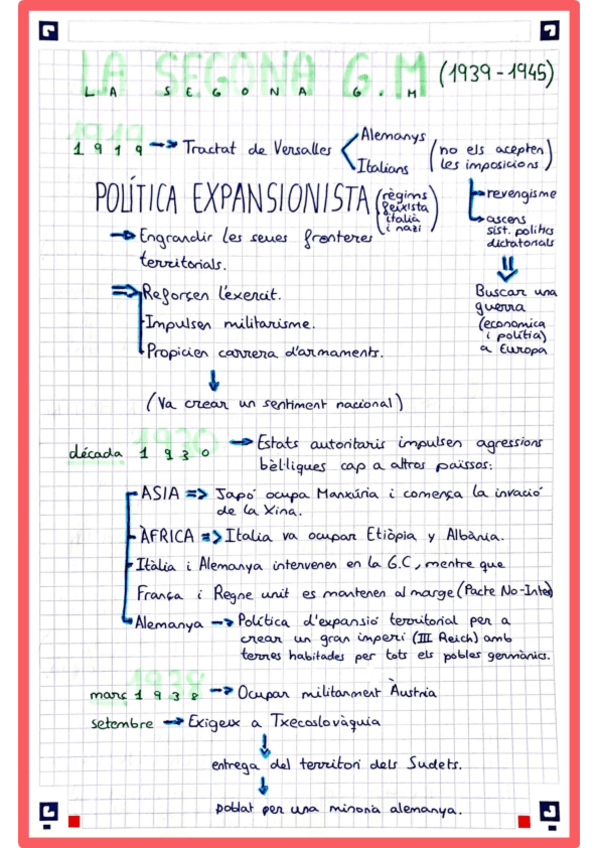 LA SEGONA G.M (1939-1945)
LA SEGONA G.M
1919 → Tractat de Versalles
Alemanys
Italians
(no els acepten
les imposicions)
→ revengisme
→ ascens
sist. politics
dictatorials
⇓
Buscar una
guerra
(economica
i polítia)
a Europa
POLÍTICA EXPANSIONISTA (règims
feixista
italià
i nazi)
→ Engrandir les seues fronteres
territorials.
⇒ Reforçen l'exercit.
Impulsen militarisme.
Propicien carrera d'armaments.
↓
(Va crear un sentiment nacional)
década 1930 → Estats autoritaris impulsen agressions
bèl·liques cap a altros païssos:
ASIA => Japó ocupa Manxúria i comença la invació
de la Xina.
ÀFRICA => Italia va ocupar Etiòpia y Albània.
Itàlia i Alemanya intervenen en la G.C, mentre que
França i Regne unit es mantenen al marge (Pacte No-Inte)
Alemanya → Política d'expansió territorial per a
crear un gran imperi (III Reich) amb
terres habitades per tots els pobles germànics.
març 1938 → Ocupar militarment Àustria
setembre → Exigeix a Txecoslovàquia
↓
entrega del territori dels Sudets.
↓
poblat per una minoria alemanya.